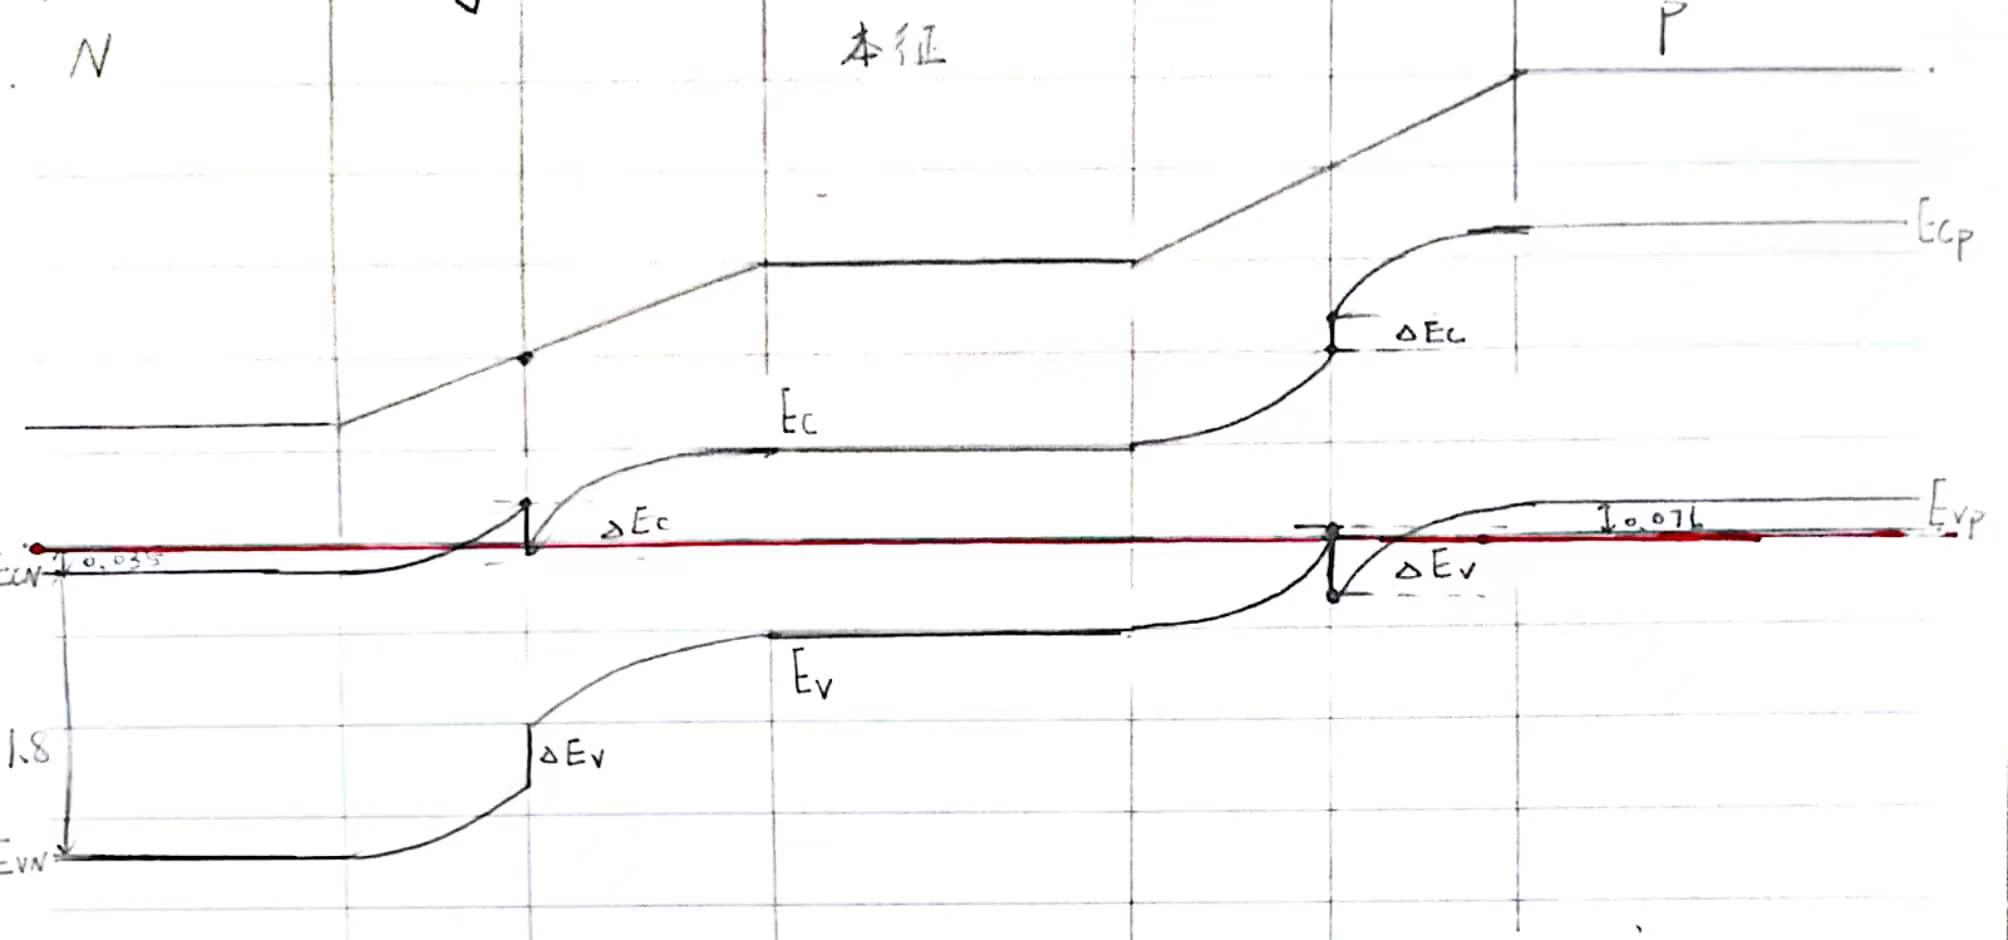 N
本征
P
Ecp
ΔEc
Ec
Evp
0.076
ΔEc
ECN
0.035
ΔEv
Ev
1.8
ΔEv
EVN